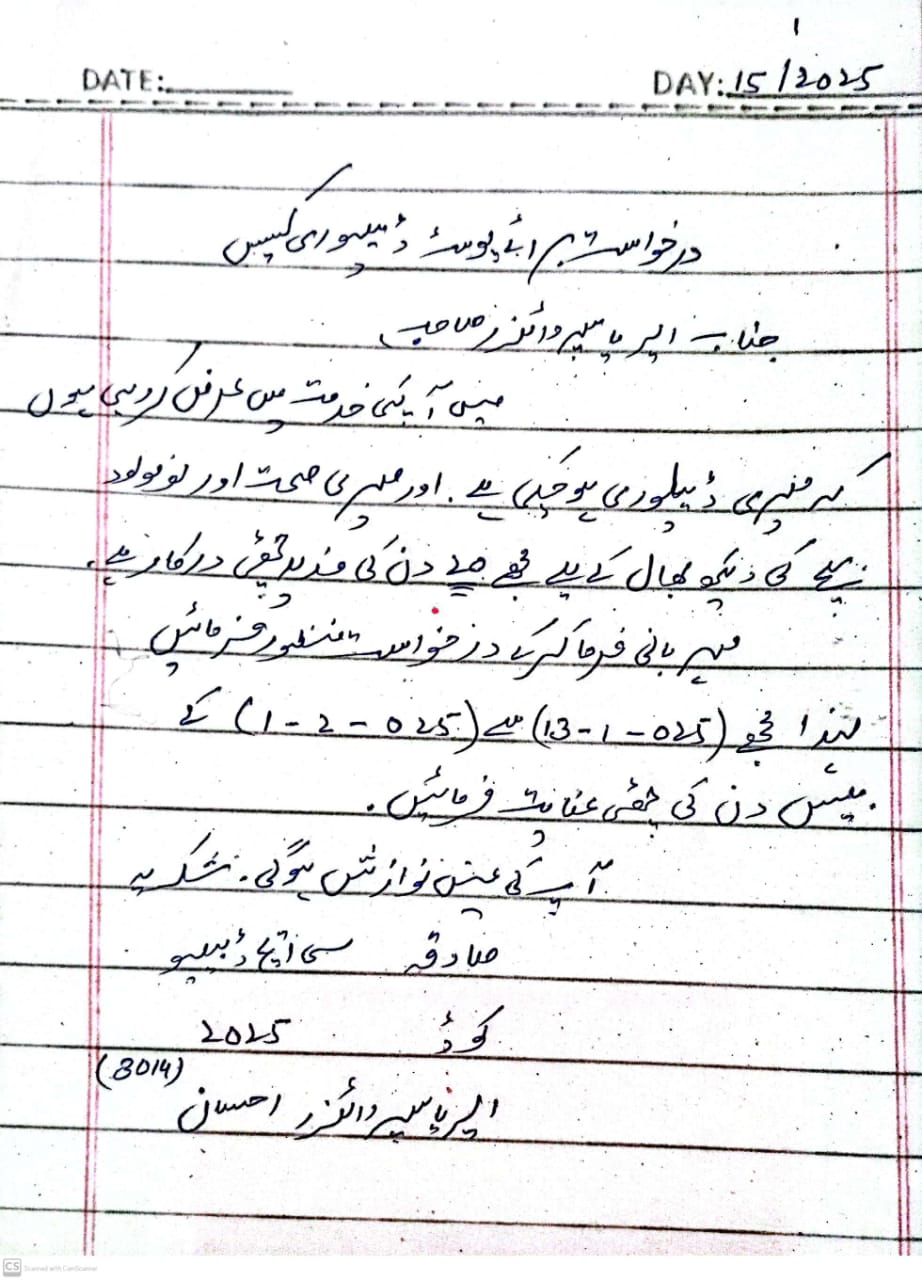 1
DATE:________ DAY: 15/2025
درخواست برائے پوسٹ ڈیلیوری کیس
جناب ایریا سپروائزر صاحب
میں آپکی خدمت میں عرض کر رہی ہوں
کہ میری ڈیلیوری ہو چکی ہے. اور میری صحت اور نومولود
بچے کی دیکھ بھال کے لیے مجھے دن کی مزید چھٹی درکار ہے.
مہربانی فرما کر کے درخواست منظور فرمائیں
لہذا مجھے (13-1-025) سے (1-2-025) کے
بیس دن کی چھٹی عنایت فرمائیں.
آپ کی عین نوازش ہوگی. شکریہ
صادقہ سی ایچ ڈبلیو
کوڈ 2025
(3014)
ایریا سپروائزر احسان
CS Scanned with CamScanner